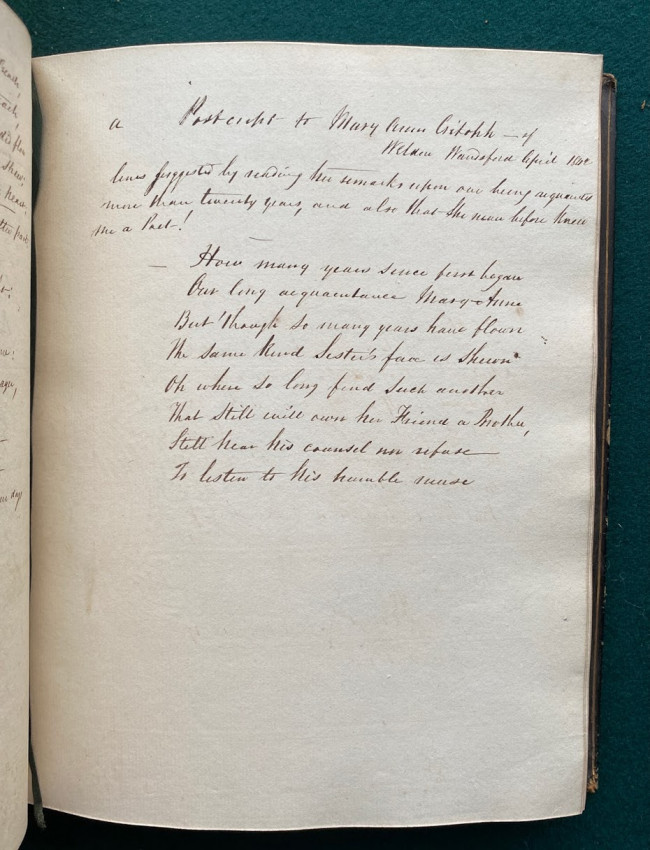 a Postcript to Mary Ann — of
April
lines suggested by reading her remarks upon our being acquaintd
more than twenty years, and also that She never before Knew
me a Poet!
— How many years since first began
Our long acquaintance Mary-Anne
But 'though So many years have flown
The same Kind Sister's face is Shewn
Oh where so long find Such another
That Still will own her Friend a Brother,
Still hear his counsel nor refuse
To listen to his humble muse